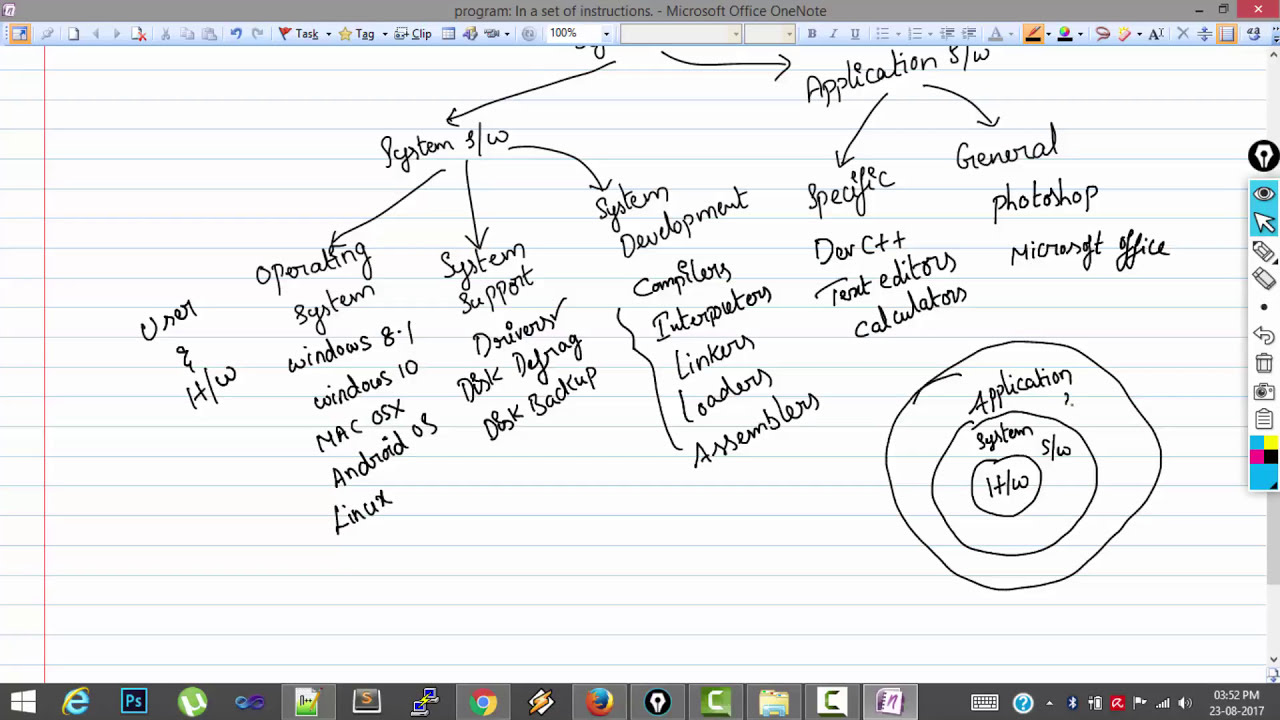 program: In a set of instructions. - Microsoft Office OneNote
Task
Tag
Clip
100%
B I U
Application S/w
System S/w
General
Photoshop
Microsoft office
Specific
Dev C++
Text editors
Calculators
System
Development
Compilers
Interpreters
Linkers
Loaders
Assemblers
System
Support
Drivers
Disk Defrag
Disk Backup
Operating
System
windows 8.1
windows 10
MAC OSX
Android OS
Linux
User
&
H/w
Application
System
S/w
H/w
Ps
03:52 PM
23-08-2017